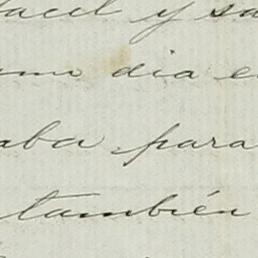 facil y sa
dia e
aba para
también